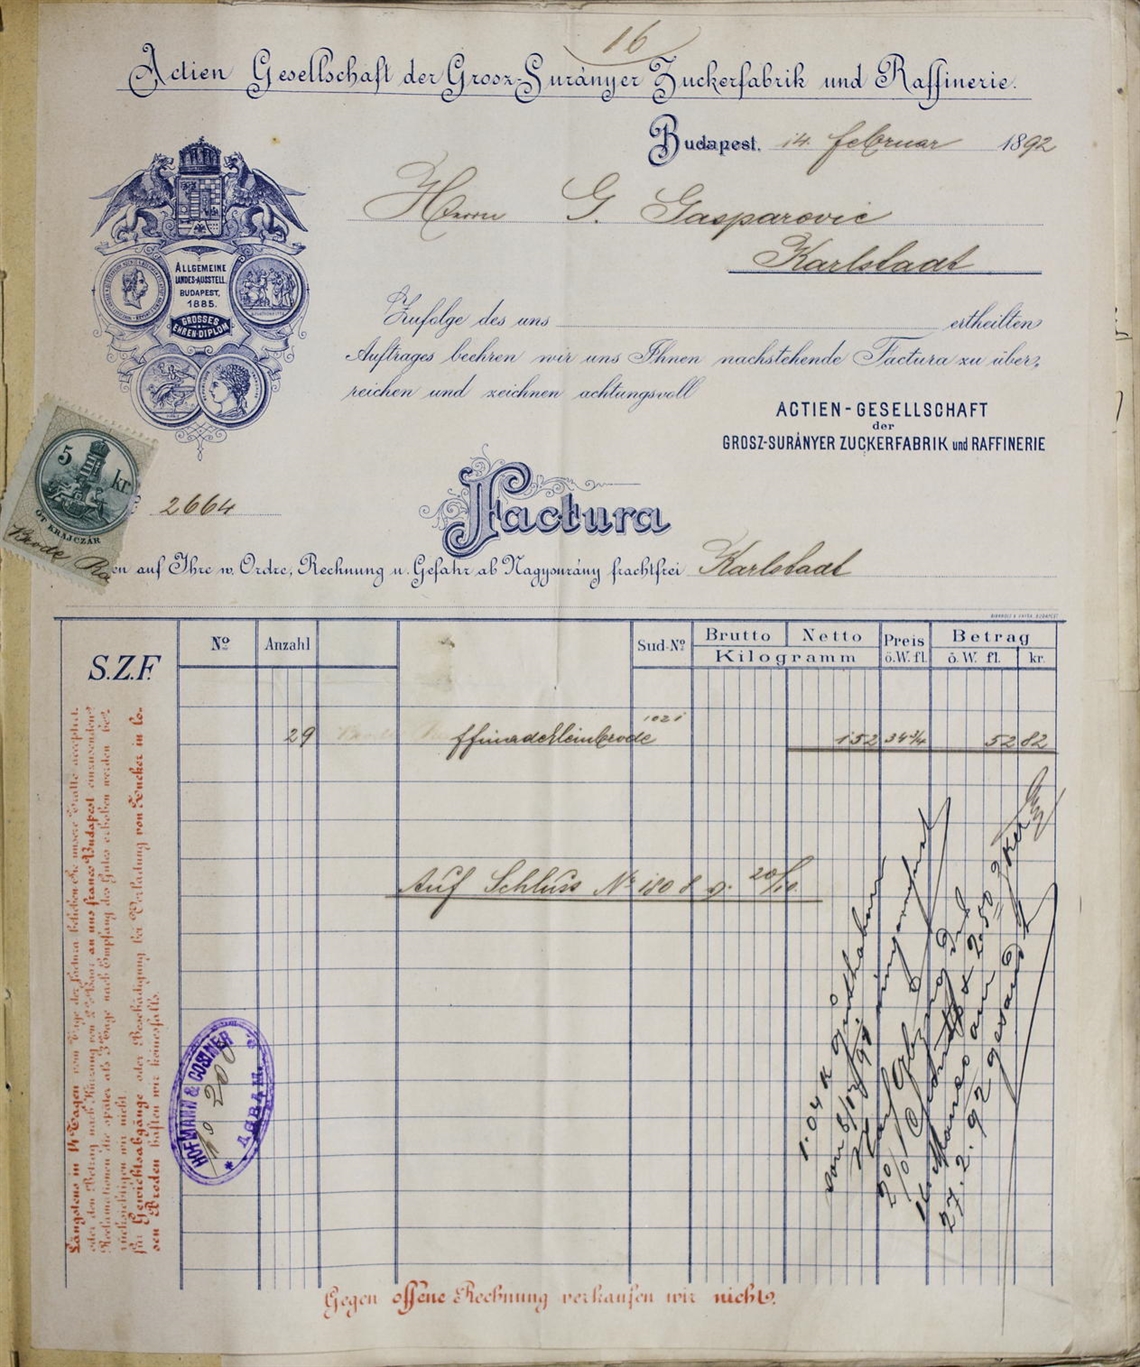 16
Actien Gesellschaft der Grosz-Surányer Zuckerfabrik und Raffinerie.
Budapest, 14. februar 1892
Herrn G. Gasparovic
Karlstadt
ALLGEMEINE
LANDES-AUSSTELL.
BUDAPEST,
1885.
GROSSES
EHREN-DIPLOM
Zufolge des uns ertheilten
Auftrages beehren wir uns Ihnen nachstehende Factura zu über-
reichen und zeichnen achtungsvoll
ACTIEN-GESELLSCHAFT
der
GROSZ-SURÁNYER ZUCKERFABRIK und RAFFINERIE
5 kr
ÖT KRAJCZÁR
Brode Ra
2664
Factura
en auf Ihre w. Ordre, Rechnung u. Gefahr ab Nagysurány frachtfrei Karlstadt
S.Z.F.
No Anzahl Sud-No Brutto Netto Preis Betrag
Kilogramm ö.W.fl. ö.W. fl. kr.
1021
29 ffinadekleinbrode 152 34¾ 52 82
Auf Schluss No 180 8 g. 20/10.
Längstens in 14 Tagen vom Tage der Factura belieben Sie unsere Tratte acceptirt
oder den Betrag nach Kürzung von 2% Baar an uns franco Budapest einzusenden
Reclamationen die später als 3 Tage nach Empfang des Gutes erhoben werden be-
rücksichtigen wir nicht.
für Gewichtsabgänge oder Beschädigung bei Verladung von Zucker in lo-
sen Broden haften wir keinesfalls.
HOFMANN & COSINER
No 208
* AGRAM. *
1.04 K
2%
à 2.50
27.2.92 gesandt
Gegen offene Rechnung verkaufen wir nicht.